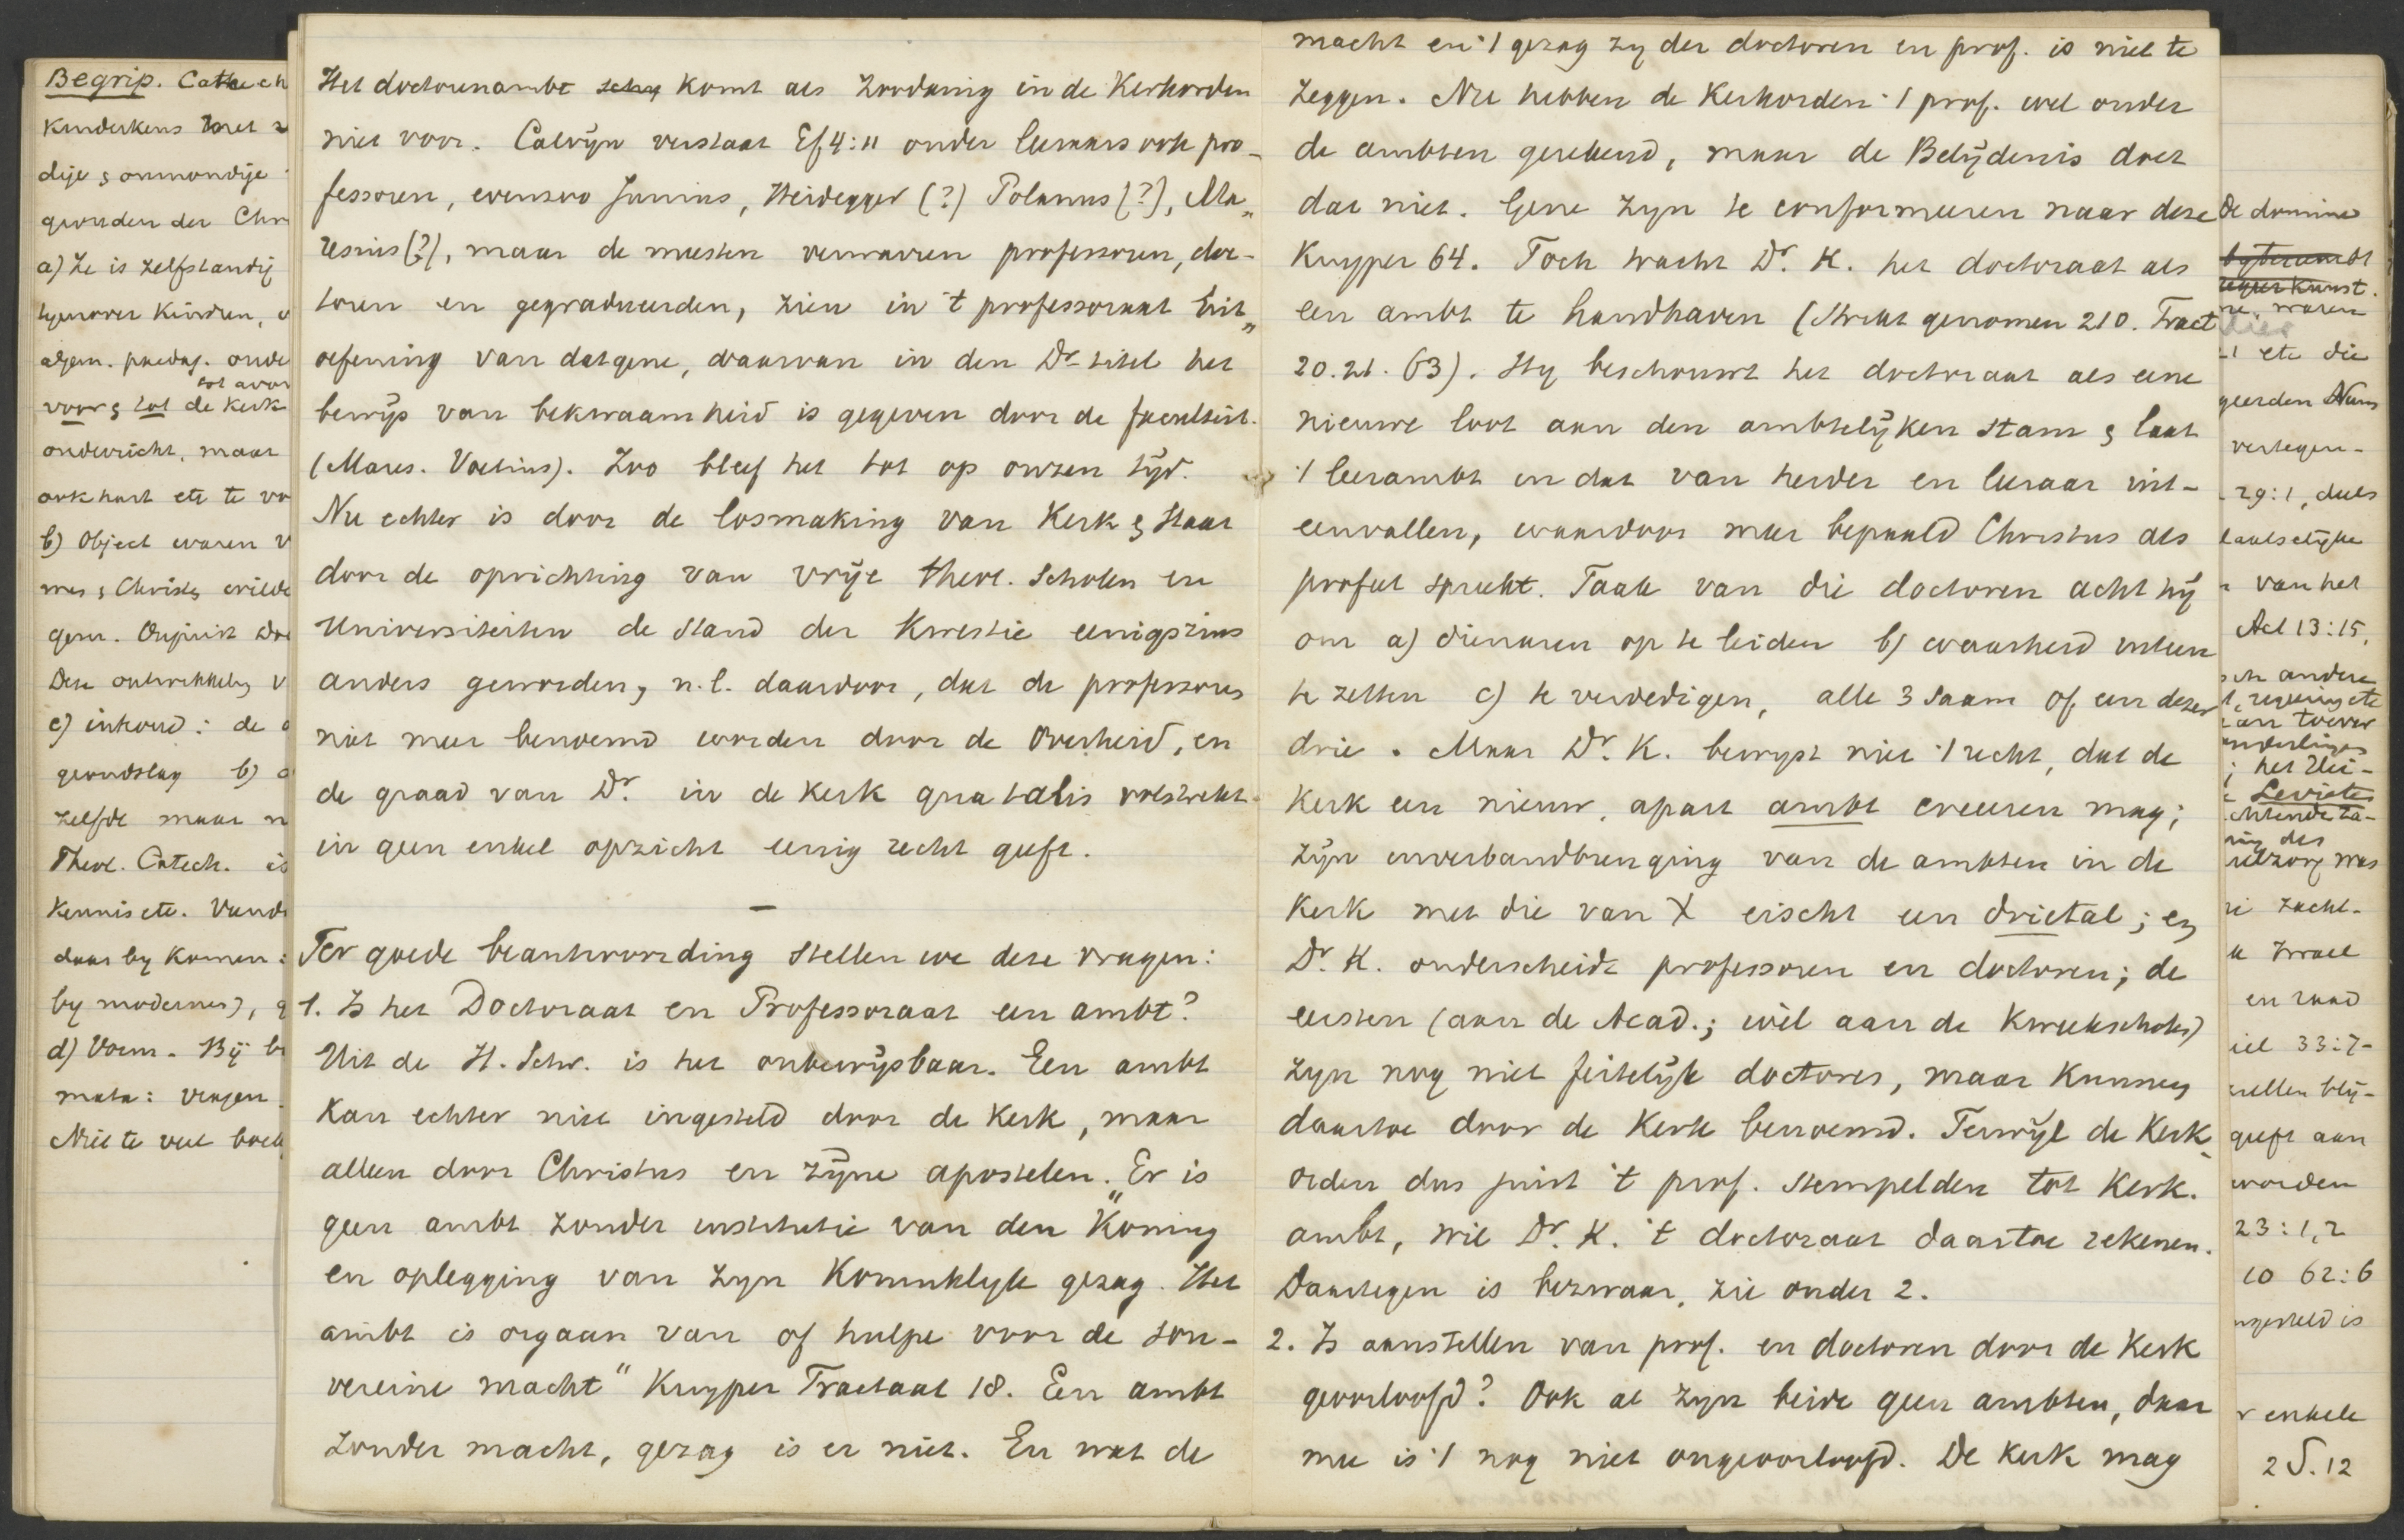 Begrip. Catech
Kinderkens met
dije & onmondije
geworden der Chr
a) Ze is zelfstandij
tegenover Kinderen,
algem. paedag. onde
tot avon
voor & tot de Kerk
onderricht, maar
ook hart etc te vo
b) Object waren v
mes & Christ
gem.
Deze ontwikkeling v
c) inhoud: de
grondslag b)
zelfde maar n
Theol. Catech. is
Kennis etc. Vand
daar by Komen:
by modernen), g
d) Vorm. Bij b
mata: vragen
Niet te veel boek
Het doctorenambt schy komt als zoodanig in de Kerkorden
niet voor. Calvijn verstaat Ef 4:11 onder leeraars ook pro-
fessoren, evenzoo Junius, Heidegger (?) Polanus (?), Ma„
resius (?), maar de meesten verwaren professoren, doc-
toren en gegradueerden, zien in 't professoraat Uit„
oefening van datgene, waarvan in den Dr titel het
bewijs van bekwaamheid is gegeven door de faculteit.
(Mares. Voetius). Zoo bleef het tot op onzen tijd.
Nu echter is door de losmaking van Kerk & Staat
door de oprichting van vrije theol. Scholen en
Universiteiten de stand der Kwestie eenigszins
anders geworden, n.l. daardoor, dat de professores
niet meer benoemd worden door de Overheid, en
de graad van Dr. in de Kerk qua talis volstrekt
in geen enkel opzicht eenig recht geeft.
—
Ter goede beantwoording stellen we deze vragen:
1. Is het Doctoraat en Professoraat een ambt?
Uit de H. Schr. is het onbewijsbaar. Een ambt
Kan echter niet ingesteld door de Kerk, maar
alleen door Christus en zijne apostelen. Er is
geen ambt zonder institutie van den "Koning
en oplegging van zyn Koninklyk gezag. Het
ambt is orgaan van of hulpe voor de sou-
vereine macht" Kuyper Tractaat 18. Een ambt
zonder macht, gezag is er niet. En wat de
macht en 't gezag zy der doctoren en prof. is niet te
zeggen. Nu hebben de Kerkorden 't prof. wel onder
de ambten gerekend, maar de Belijdenis doet
dat niet. Gene zyn te conformeeren naar deze
Kuyper 64. Toch tracht Dr. K. het doctoraat als
een ambt te handhaven (Strekt genomen 210. Tract
20.21. 63). Hy beschouwt het doctoraat als eene
nieuwe loot aan den ambtelijken stam & laat
't leerambt en dat van herder en leeraar uit-
eenvallen, waardoor meer bepaald Christus als
profeet spreekt. Taak van die doctoren acht hij
om a) dienaren op te leiden b) waarheid uiteen
te zetten c) te verdedigen, alle 3 saam of een dezer
drie. Maar Dr. K. bewyst niet 't recht, dat de
Kerk een nieuw, apart ambt creeeren mag;
zijn inverbandbrenging van de ambten in de
Kerk met die van X eischt een drietal; en
Dr. K. onderscheidt professoren en doctoren; de
eersten (aan de Acad.; wel aan de Kweekscholen)
zyn nog niet feitelijk doctores, maar Kunnen
daartoe door de Kerk benoemd. Terwijl de Kerk-
orden dus juist 't prof. stempelden tot Kerk.
ambt, wil Dr. K. 't doctoraat daartoe rekenen.
Daartegen is bezwaar, zie onder 2.
2. Is aanstellen van prof. en doctoren door de Kerk
geoorloofd? Ook al zyn beide geen ambten, daar
mee is 't nog niet ongeoorloofd. De Kerk mag
De domine
ne, waren
etc die
geerden Num
vertegen-
29:1, deels
laatselijke
van het
Act 13:15,
andere
regeering etc
toever
onderlinges
; het Vei-
Levieten
chtende ta-
ning des
zielzorg was
zacht-
Israel
en raad
iel 33:7-
zullen blij-
geeft aan
worden
23:1,2
10 62:6
ngesteld is
r enkele
2 S. 12